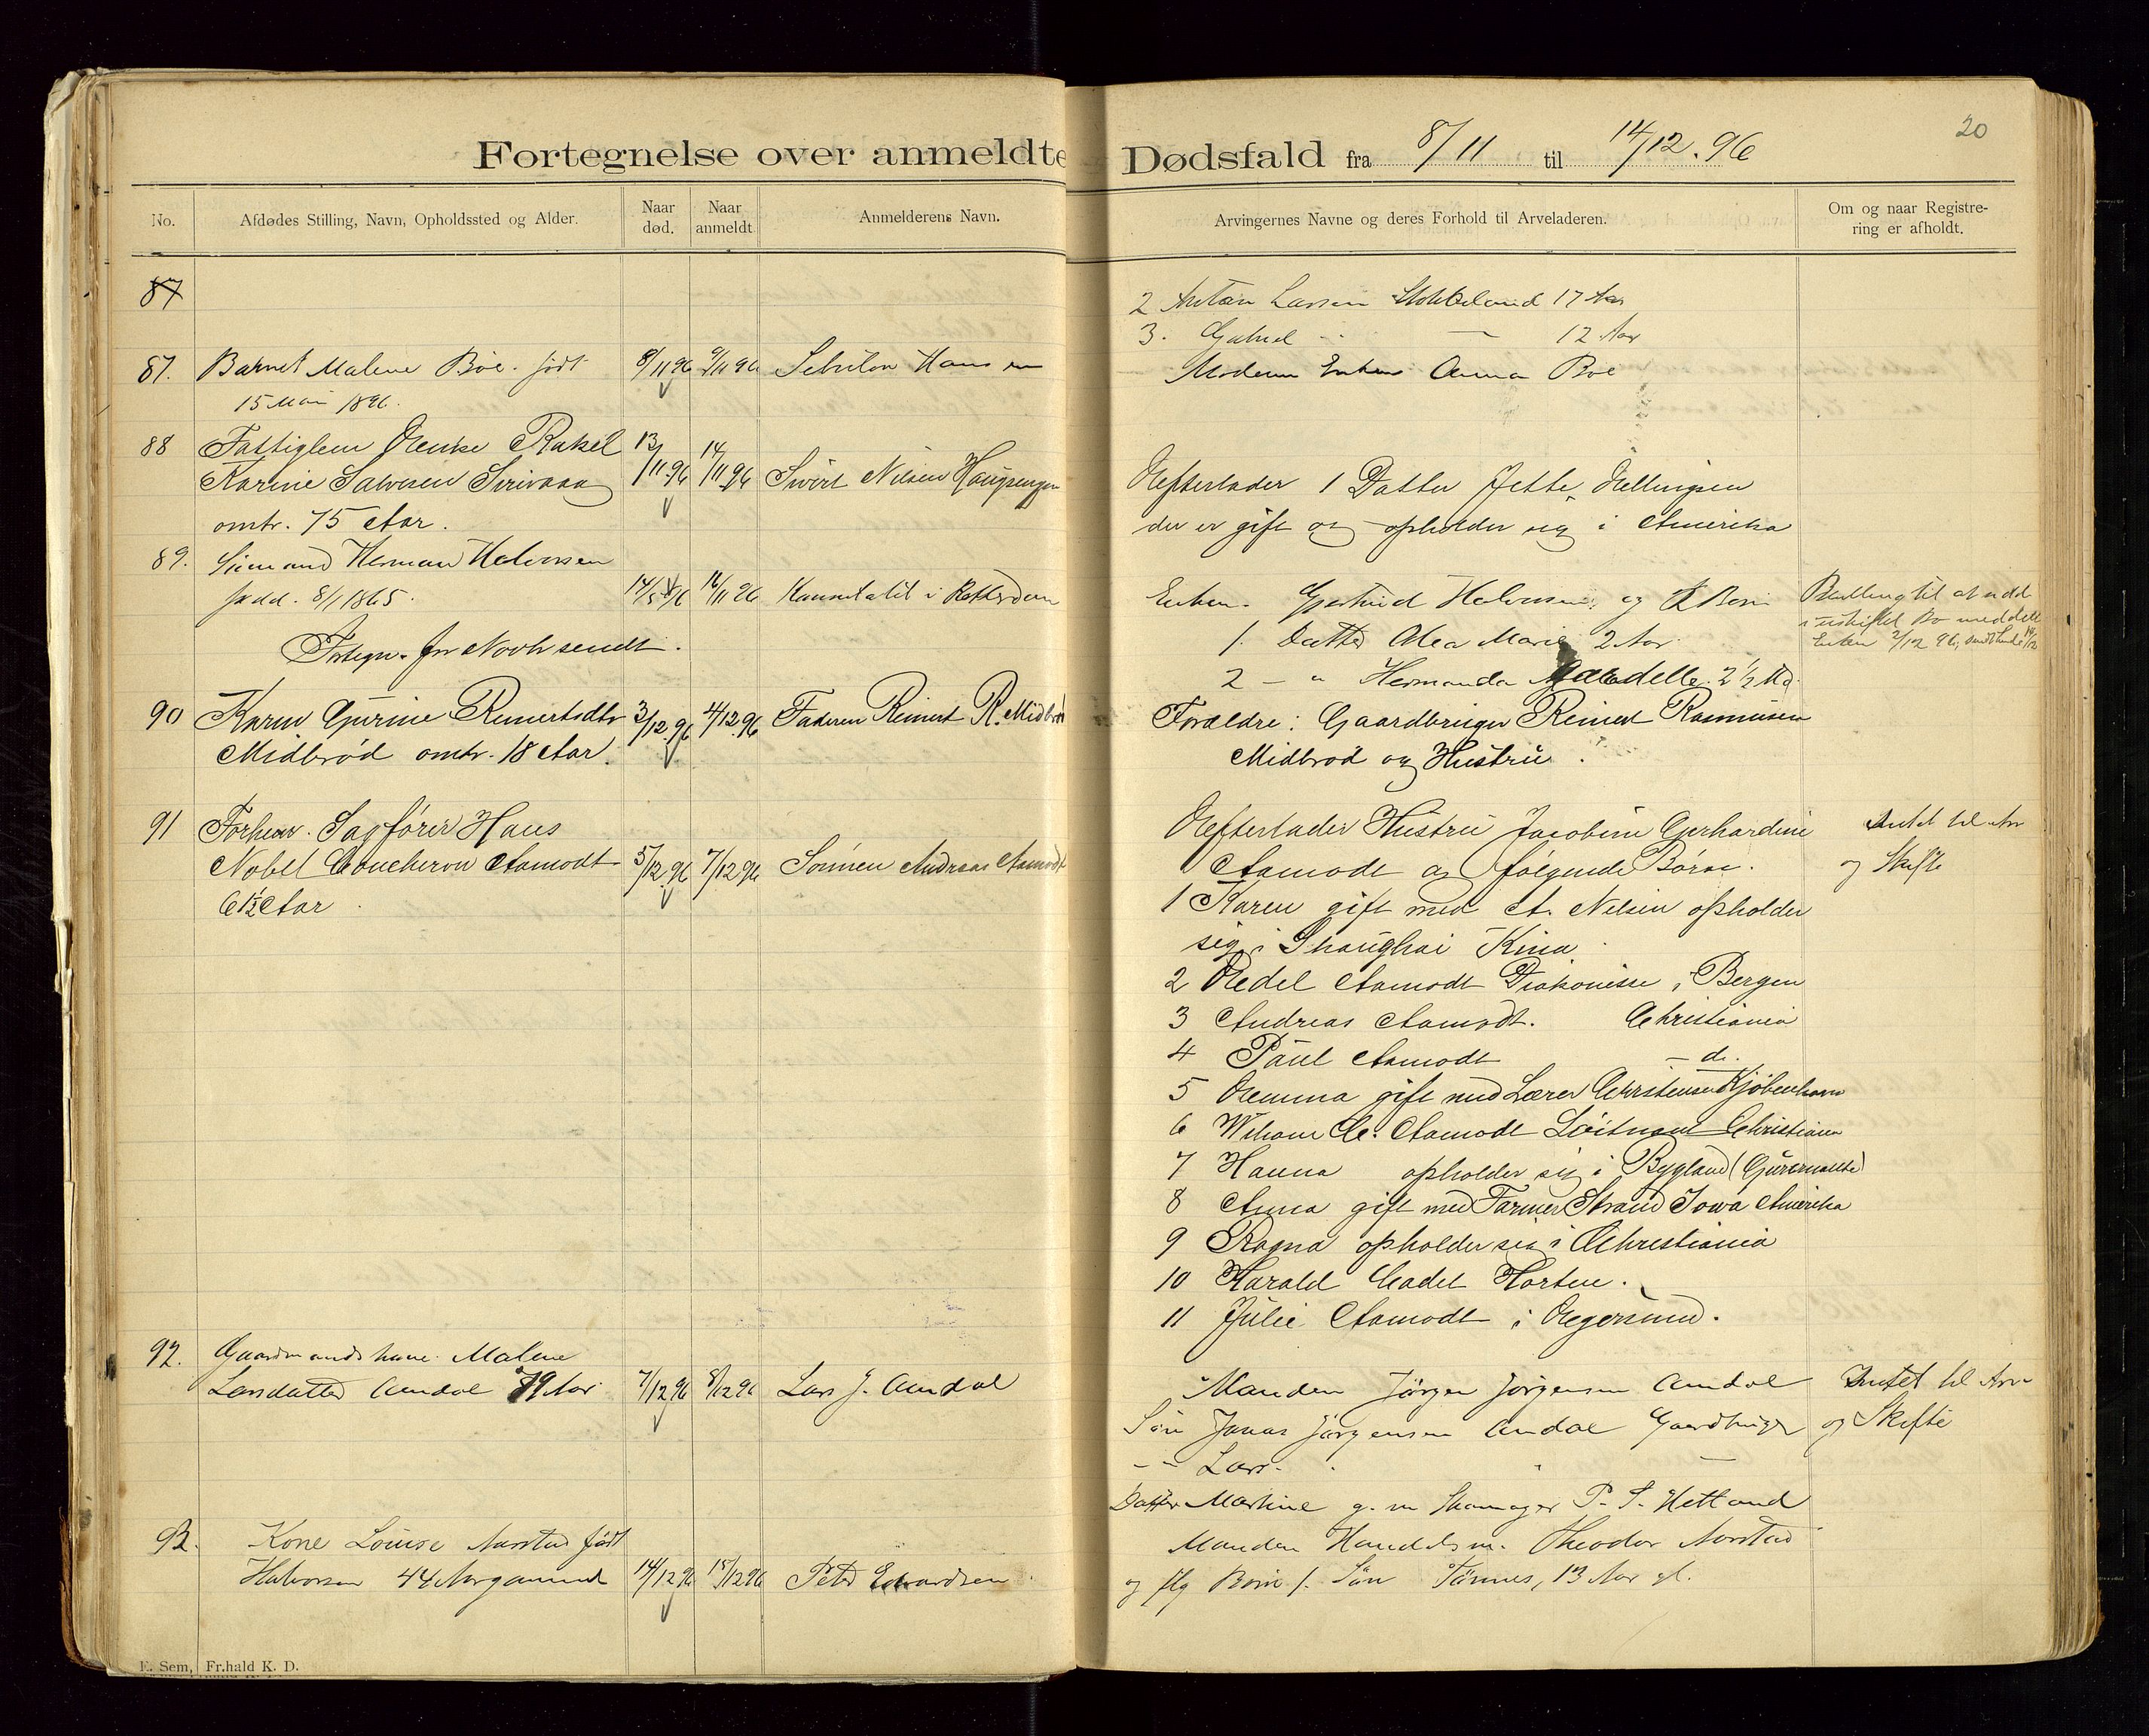 20
Fortegnelse over anmeldte Dødsfald fra 8/11 til 14/12. 96
No.
Afdødes Stilling, Navn, Opholdssted og Alder.
Naar død.
Naar anmeldt.
Anmelderens Navn.
Arvingernes Navne og deres Forhold til Arveladeren.
Om og naar Registrering er afholdt.
87
2 Lassen Stokkeland 17 Aar
3. Gabriel - 12 Aar
87. Barnet Malene Böe. født 8/11 96 9/11 96 Hansen
Moderen Enken Anna Böe
15 Mai 1896.
88 Fattiglem Rakel 13/11.96 14/11.96 Sivert Nilsen
Karine Salvesen Sirivaag
omtr. 75 Aar.
Efterlader 1 Datter Jette Ellingsen
der er gift og opholder sig i Amerika
89. Sömand Herman Halvorsen
født. 8/1 1865. 16/11 96 Konsulatet i Rotterdam
Enken Gjertrud Halvorsen, og 2 Börn
1. Datter Alea Marie 2 Aar.
2 - " Hermanda 2½ Md.
Bevilling til at sidde
i uskiftet Bo meddelt
Enken 2/12 96,
90 Karen Gurine Reinertsdtr 3/12.96 4/12.96 Faderen Reinert R. Midbröd
Midbröd omtr. 18 Aar.
Forældre: Gaardbruger Reinert Rasmussen
Midbröd og Hustru.
91 Forhenv. Sagförer Hans
Nobel Coucheron Aamodt 5/12.96 7/12 96 Sönnen Andreas Aamodt
61½ Aar.
Efterlader Hustru Jacobine Gerhardine
Aamodt og følgende Börn.
Intet til Arv
og Skifte
1 Karen gift med A. Nilsen opholder
sig i Shanghai Kina
2 Edel Aamodt Diakonisse i Bergen
3 Andreas Aamodt. Christiania
4 Paul Aamodt - do.
5 Emma gift med Lærer Christensen Kjöbenhavn
6 C. Aamodt Löitnant Christiania
7 Hanna opholder sig i Bygland (Guvernante)
8 Anna gift med Farmer Strand Iowa Amerika
9 Ragna opholder sig i Christiania
10 Harald Cadet Horten.
11 Julie Aamodt i Egersund.
92. Gaardmandskone Malene
Larsdatter Aamdal 79 Aar 7/12 96 8/12 96 Lars J. Aamdal
Manden Jörgen Jörgensen Aamdal
Sön Jonas Jörgensen Aamdal Gaardbruger
- - Lars -
Datter Martine g. m. Skomager P. T. Hetland
Intet til Arv
og Skifte
93. Kone Louise Aarstad født
Halvorsen 44 Aar gammel 14/12 96 15/12 96 Peter Edvardsen
Manden Handelsm. Theodor Aarstad
og flg Börn 1. Sön Tönnes, 13 Aar gl.
E. Sem, Fr.hald K. D.